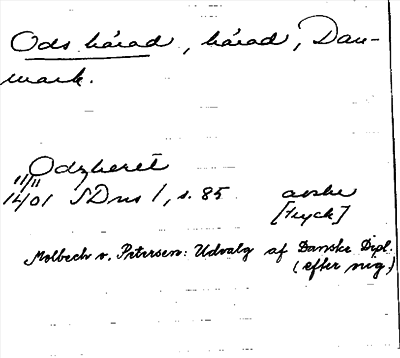 Ods härad, härad, Dan-
mark.
Odzheret
11/11
1401 SDns 1, s. 85 avskr
[tryck]
Molbech o. Petersen: Udvalg af Danske Dipl.
(efter orig.)